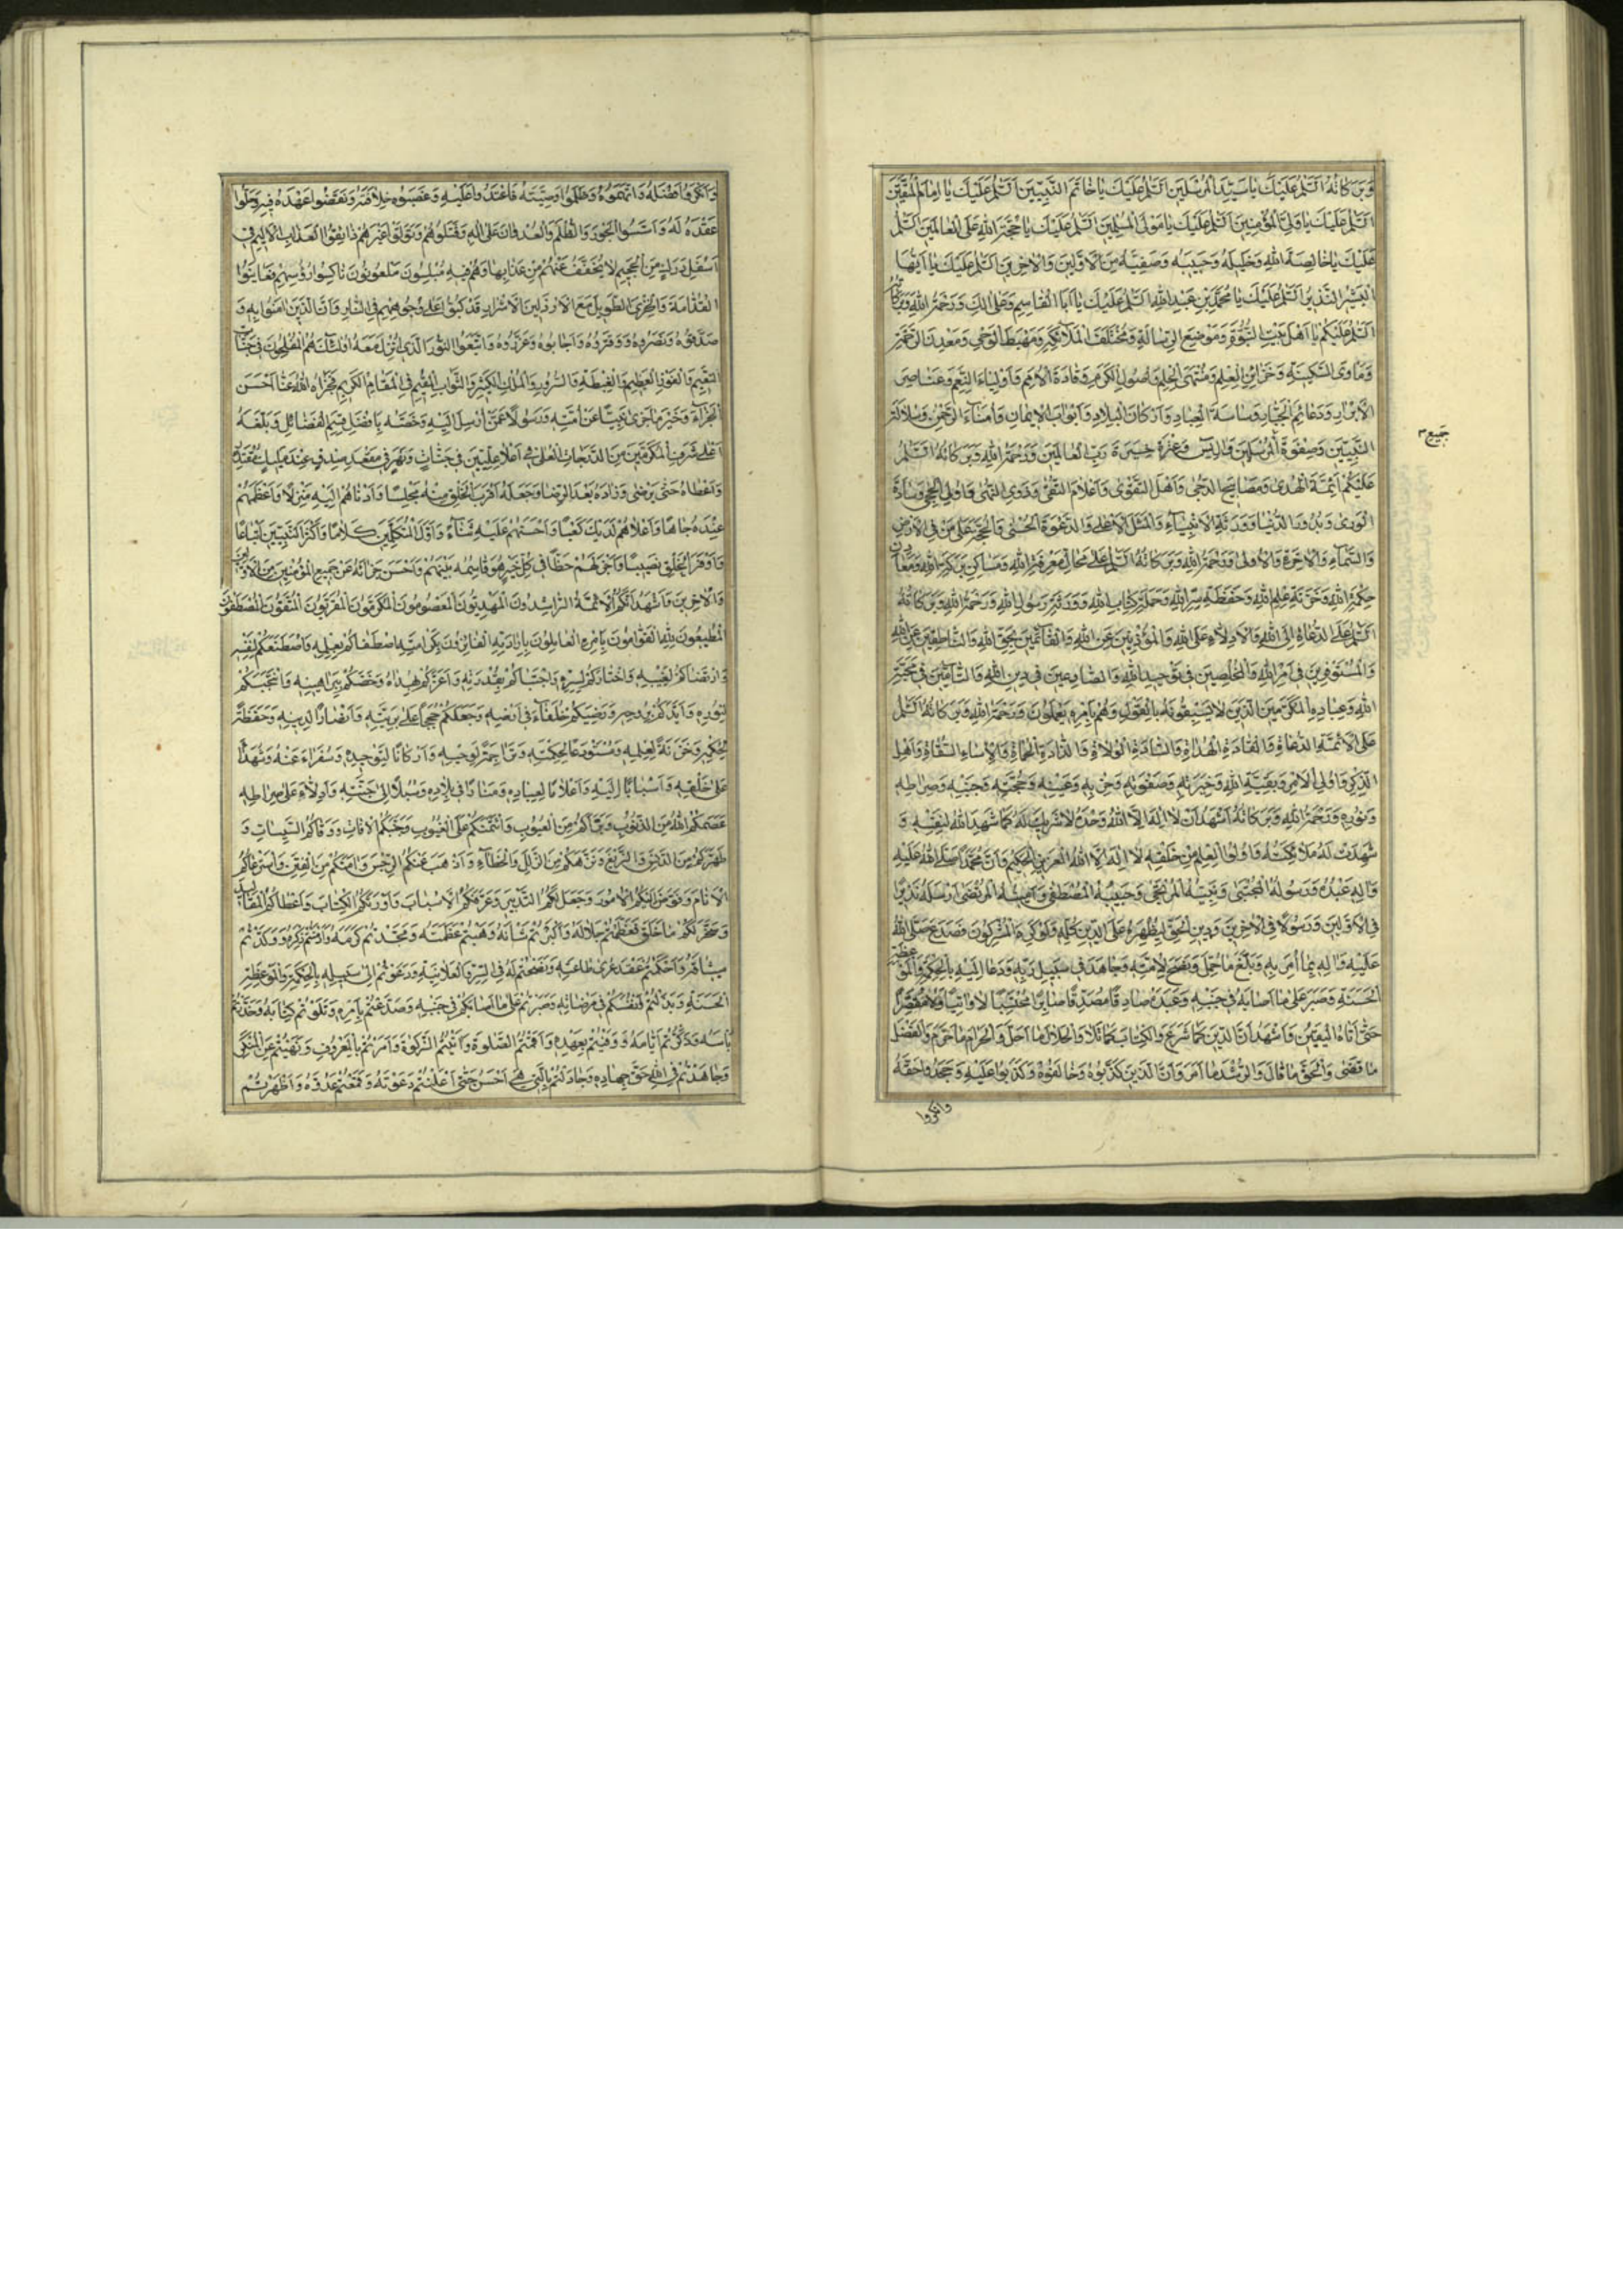 وَبَرَكاتُهُ اَلسَّلامُ عَلَيْكَ يا سَيِّدَ الْمُرْسَلينَ اَلسَّلامُ عَلَيْكَ يا خاتَمَ النَّبِيّينَ اَلسَّلامُ عَلَيْكَ يا اِمامَ الْمُتَّقينَ
اَلسَّلامُ عَلَيْكَ يا وَلِيَّ الْمُؤْمِنينَ اَلسَّلامُ عَلَيْكَ يا مَوْلَى الْمُسْلِمينَ اَلسَّلامُ عَلَيْكَ يا حُجَّةَ اللهِ عَلَى الْعالَمينَ اَلسَّلامُ
عَلَيْكَ يا خالِصَةَ اللهِ وَخَليلَهُ وَحَبيبَهُ وَصَفِيَّهُ مِنَ الْاَوَّلينَ وَالْاخِرينَ اَلسَّلامُ عَلَيْكَ يا اَيُّهَا
الْبَشيرُ النَّذيرُ اَلسَّلامُ عَلَيْكَ يا مُحَمَّدَ بْنَ عَبْدِ اللهِ اَلسَّلامُ عَلَيْكَ يا اَبَا الْقاسِمِ وَعَلى الِكَ وَرَحْمَةُ اللهِ وَبَرَكاتُهُ
اَلسَّلامُ عَلَيْكُمْ يا اَهْلَ بَيْتِ النُّبُوَّةِ وَمَوْضِعَ الرِّسالَةِ وَمُخْتَلَفَ الْمَلائِكَةِ وَمَهْبِطَ الْوَحْيِ وَمَعْدِنَ الرَّحْمَةِ
وَمَاْوَى السَّكينَةِ وَخُزّانَ الْعِلْمِ وَمُنْتَهَى الْحِلْمِ وَاُصُولَ الْكَرَمِ وَقادَةَ الْاُمَمِ وَاَوْلِياءَ النِّعَمِ وَعَناصِرَ
الْاَبْرارِ وَدَعائِمَ الْجَبّارِ وَساسَةَ الْعِبادِ وَاَرْكانَ الْبِلادِ وَاَبْوابَ الْايمانِ وَاُمَناءَ الرَّحْمنِ وَسُلالَةَ
النَّبِيّينَ وَصَفْوَةَ الْمُرْسَلينَ وَالِ يس وَعِتْرَةَ خِيَرَةِ رَبِّ الْعالَمينَ وَرَحْمَةُ اللهِ وَبَرَكاتُهُ اَلسَّلامُ
عَلَيْكُمْ اَئِمَّةَ الْهُدى وَمَصابيحَ الدُّجى وَاَهْلَ التَّقْوى وَاَعْلامَ التُّقى وَذَوِي النُّهى وَاُولِي الْحِجى وَسادَةَ
الْوَرى وَبُدُورَ الدُّنْيا وَوَرَثَةَ الْاَنْبِياءِ وَالْمَثَلَ الْاَعْلى وَالدَّعْوَةَ الْحُسْنى وَالْحُجَّةَ عَلى مَنْ فِي الْاَرْضِ
وَالسَّماءِ وَالْاخِرَةِ وَالْاُولى وَرَحْمَةُ اللهِ وَبَرَكاتُهُ اَلسَّلامُ عَلى مَحالِّ مَعْرِفَةِ اللهِ وَمَساكِنِ بَرَكَةِ اللهِ وَمَعادِنِ
حِكْمَةِ اللهِ وَخَزَنَةِ عِلْمِ اللهِ وَحَفَظَةِ سِرِّ اللهِ وَحَمَلَةِ كِتابِ اللهِ وَوَرَثَةِ رَسُولِ اللهِ وَرَحْمَةُ اللهِ وَبَرَكاتُهُ
اَلسَّلامُ عَلَى الدُّعاةِ اِلَى اللهِ وَالْاَدِلّاءِ عَلَى اللهِ وَالْمُؤْذِنينَ عَنِ اللهِ وَالْقائِمينَ بِحَقِّ اللهِ وَالنّاطِقينَ عَنِ اللهِ
وَالْمُسْتَوْفِرينَ في اَمْرِ اللهِ وَالْمُخْلِصينَ في تَوْحيدِ اللهِ وَالصّادِعينَ في دينِ اللهِ وَالتّامّينَ في مَحَبَّةِ
اللهِ وَعِبادِهِ الْمُكْرَمينَ الَّذينَ لا يَسْبِقُونَهُ بِالْقَوْلِ وَهُمْ بِاَمْرِهِ يَعْمَلُونَ وَرَحْمَةُ اللهِ وَبَرَكاتُهُ اَلسَّلامُ
عَلَى الْاَئِمَّةِ الدُّعاةِ وَالْقادَةِ الْهُداةِ وَالسّادَةِ الْوُلاةِ وَالذّادَةِ الْحُماةِ وَالْاُساءِ السُّقاةِ وَاَهْلِ
الذِّكْرِ وَاُولِي الْاَمْرِ وَبَقِيَّةِ اللهِ وَخِيَرَتِهِ وَصَفْوَتِهِ وَحِزْبِهِ وَعَيْبَتِهِ وَحُجَّتِهِ وَجَنْبِهِ وَصِراطِهِ
وَنُورِهِ وَرَحْمَةُ اللهِ وَبَرَكاتُهُ اَشْهَدُ اَنْ لا اِلهَ اِلَّا اللهُ وَحْدَهُ لا شَريكَ لَهُ كَما شَهِدَ اللهُ لِنَفْسِهِ وَ
شَهِدَتْ لَهُ مَلائِكَتُهُ وَاُولُوا الْعِلْمِ مِنْ خَلْقِهِ لا اِلهَ اِلَّا اللهُ الْعَزيزُ الْحَكيمُ وَاَنَّ مُحَمَّداً صَلَّى اللهُ عَلَيْهِ
وَالِهِ عَبْدُهُ وَرَسُولُهُ الْمُجْتَبى وَنَبِيُّهُ الْمُرْتَجى وَحَبيبُهُ الْمُصْطَفى وَاَمينُهُ الْمُرْتَضى اَرْسَلَهُ نَذيراً
فِي الْاَوَّلينَ وَرَسُولاً فِي الْاخِرينَ وَدينِ الْحَقِّ لِيُظْهِرَهُ عَلَى الدّينِ كُلِّهِ وَلَوْ كَرِهَ الْمُشْرِكُونَ فَصَدَعَ صَلَّى اللهُ
عَلَيْهِ وَالِهِ بِما اُمِرَ بِهِ وَبَلَّغَ ما حُمِّلَ وَنَصَحَ لِاُمَّتِهِ وَجاهَدَ في سَبيلِ رَبِّهِ وَدَعا اِلَيْهِ بِالْحِكْمَةِ وَالْمَوْعِظَةِ
الْحَسَنَةِ وَصَبَرَ عَلى ما اَصابَهُ في جَنْبِهِ وَعَبَدَهُ صادِقاً مُصَدِّقاً صابِراً مُحْتَسِباً لا وانِياً وَلا مُقَصِّراً
حَتّى اَتاهُ الْيَقينُ وَاَشْهَدُ اَنَّ الدّينَ كَما شَرَعَ وَالْكِتابَ كَما تَلا وَالْحَلالَ ما اَحَلَّ وَالْحَرامَ ما حَرَّمَ وَالْفَصْلَ
ما قَضى وَالْحَقَّ ما قالَ وَالرُّشْدَ ما اَمَرَ وَاَنَّ الَّذينَ كَذَّبُوهُ وَخالَفُوهُ وَكَذَبُوا عَلَيْهِ وَجَحَدُوا حَقَّهُ
وانكروا
جميع م
وَاَنْكَرُوا فَضْلَهُ وَاتَّهَمُوهُ وَظَلَمُوا وَصِيَّتَهُ فَاعْتَدُوا عَلَيْهِ وَغَصَبُوهُ خِلافَتَهُ وَنَقَضُوا عَهْدَهُ فيهِ وَحَلُّوا
عَقْدَهُ لَهُ وَاَسَّسُوا الْجَوْرَ وَالظُّلْمَ وَالْعُدْوانَ عَلى الِهِ وَقَتَلُوهُمْ وَتَوَلَّوْا غَيْرَهُمْ ذائِقُوا الْعَذابِ الْاَليمِ في
اَسْفَلِ دَرَكٍ مِنَ الْجَحيمِ لا يُخَفَّفُ عَنْهُمْ مِنْ عَذابِها وَهُمْ فيهِ مُبْلِسُونَ مَلْعُونُونَ ناكِسُوا رُؤُسِهِمْ فَعايَنُوا
النَّدامَةَ وَالْخِزْيَ الطَّويلَ مَعَ الْاَرْذَلينَ الْاَشْرارِ قَدْ كُبُّوا عَلى وُجُوهِهِمْ فِي النّارِ وَاَنَّ الَّذينَ امَنُوا بِهِ وَ
صَدَّقُوهُ وَنَصَرُوهُ وَوَقَّرُوهُ وَاَجابُوهُ وَعَزَّرُوهُ وَاتَّبَعُوا النُّورَ الَّذي اُنْزِلَ مَعَهُ اُولئِكَ هُمُ الْمُفْلِحُونَ في جَنّاتِ
النَّعيمِ وَالْفَوْزِ الْعَظيمِ وَالْغِبْطَةِ وَالسُّرُورِ وَالْمُلْكِ الْكَبيرِ وَالثَّوابِ الْمُقيمِ فِي الْمَقامِ الْكَريمِ فَجَزاهُ اللهُ عَنّا اَحْسَنَ
الْجَزاءِ وَخَيْرَ ما جَزى نَبِيّاً عَنْ اُمَّتِهِ وَرَسُولاً عَمَّنْ اُرْسِلَ اِلَيْهِ وَخَصَّهُ بِاَفْضَلِ قِسَمِ الْفَضائِلِ وَبَلَّغَهُ
اَعْلى شَرَفِ الْمُكَرَّمينَ مِنَ الدَّرَجاتِ الْعُلى في اَعْلا عِلِّيّينَ في جَنّاتٍ وَنَهَرٍ في مَقْعَدِ صِدْقٍ عِنْدَ مَليكٍ مُقْتَدِرٍ
وَاَعْطاهُ حَتّى يَرْضى وَزادَهُ بَعْدَ الرِّضا وَجَعَلَهُ اَقْرَبَ الْخَلْقِ مِنْهُ مَجْلِساً وَاَدْناهُمْ اِلَيْهِ مَنْزِلاً وَاَعْظَمَهُمْ
عِنْدَهُ جاهاً وَاَعْلاهُمْ لَدَيْكَ كَعْباً وَاَحْسَنَهُمْ عَلَيْهِ ثَناءً وَاَوَّلَ الْمُتَكَلِّمينَ كَلاماً وَاَكْثَرَ النَّبِيّينَ اَتْباعاً
وَاَوْفَرَ الْخَلْقِ نَصيباً وَاَجْزَلَهُمْ حَظّاً في كُلِّ خَيْرٍ هُوَ قاسِمُهُ بَيْنَهُمْ وَاَحْسَنَ جَزائَهُ عَنْ جَميعِ الْمُؤْمِنينَ مِنَ الْاَوَّلينَ
وَالْاخِرينَ وَاَشْهَدُ اَنَّكُمُ الْاَئِمَّةُ الرّاشِدُونَ الْمَهْدِيُّونَ الْمَعْصُومُونَ الْمُكَرَّمُونَ الْمُقَرَّبُونَ الْمُتَّقُونَ الْمُصْطَفَوْنَ
الْمُطيعُونَ لِلّهِ الْقَوّامُونَ بِاَمْرِهِ الْعامِلُونَ بِاِرادَتِهِ الْفائِزُونَ بِكَرامَتِهِ اصْطَفاكُمْ بِعِلْمِهِ وَاصْطَنَعَكُمْ لِنَفْسِهِ
وَارْتَضاكُمْ لِغَيْبِهِ وَاخْتارَكُمْ لِسِرِّهِ وَاجْتَباكُمْ بِقُدْرَتِهِ وَاَعَزَّكُمْ بِهُداهُ وَخَصَّكُمْ بِبَراهينِهِ وَانْتَجَبَكُمْ
لِنُورِهِ وَاَيَّدَكُمْ بِرُوحِهِ وَرَضِيَكُمْ خُلَفاءَ في اَرْضِهِ وَجَعَلَكُمْ حُجَجاً عَلى بَرِيَّتِهِ وَاَنْصاراً لِدينِهِ وَحَفَظَةً
لِحِكَمِهِ وَخَزَنَةً لِعِلْمِهِ وَمُسْتَوْدَعاً لِحِكْمَتِهِ وَتَراجِمَةً لِوَحْيِهِ وَاَرْكاناً لِتَوْحيدِهِ وَسُفَراءَ عَنْهُ وَشُهَداءَ
عَلى خَلْقِهِ وَاَسْباباً اِلَيْهِ وَاَعْلاماً لِعِبادِهِ وَمَناراً في بِلادِهِ وَسُبُلاً اِلى جَنَّتِهِ وَاَدِلّاءَ عَلى صِراطِهِ
عَصَمَكُمُ اللهُ مِنَ الذُّنُوبِ وَبَرَّاَكُمْ مِنَ الْعُيُوبِ وَائْتَمَنَكُمْ عَلَى الْغُيُوبِ وَجَنَّبَكُمُ الْافاتِ وَوَقاكُمُ السَّيِّئاتِ وَ
طَهَّرَكُمْ مِنَ الدَّنَسِ وَالزَّيْغِ وَنَزَّهَكُمْ مِنَ الزَّلَلِ وَالْخَطاءِ وَاَذْهَبَ عَنْكُمُ الرِّجْسَ وَامَنَكُمْ مِنَ الْفِتَنِ وَاسْتَرْعاكُمُ
الْاَنامَ وَفَوَّضَ اِلَيْكُمُ الْاُمُورَ وَجَعَلَ لَكُمُ التَّدْبيرَ وَعَرَّفَكُمُ الْاَسْبابَ وَاَوْرَثَكُمُ الْكِتابَ وَاَعْطاكُمُ الْمَقاليدَ
وَسَخَّرَ لَكُمْ ما خَلَقَ فَعَظَّمْتُمْ جَلالَهُ وَاَكْبَرْتُمْ شَاْنَهُ وَهِبْتُمْ عَظَمَتَهُ وَمَجَّدْتُمْ كَرَمَهُ وَاَدَمْتُمْ ذِكْرَهُ وَوَكَّدْتُمْ
ميثاقَهُ وَاَحْكَمْتُمْ عَقْدَ عُرى طاعَتِهِ وَنَصَحْتُمْ لَهُ فِي السِّرِّ وَالْعَلانِيَةِ وَدَعَوْتُمْ اِلى سَبيلِهِ بِالْحِكْمَةِ وَالْمَوْعِظَةِ
الْحَسَنَةِ وَبَذَلْتُمْ اَنْفُسَكُمْ في مَرْضاتِهِ وَصَبَرْتُمْ عَلى ما اَصابَكُمْ في جَنْبِهِ وَصَدَعْتُمْ بِاَمْرِهِ وَتَلَوْتُمْ كِتابَهُ وَحَذَّرْتُمْ
بَاْسَهُ وَذَكَّرْتُمْ اَيّامَهُ وَوَفَيْتُمْ بِعَهْدِهِ وَاَقَمْتُمُ الصَّلوةَ وَاتَيْتُمُ الزَّكوةَ وَاَمَرْتُمْ بِالْمَعْرُوفِ وَنَهَيْتُمْ عَنِ الْمُنْكَرِ
وَجاهَدْتُمْ فِي اللهِ حَقَّ جِهادِهِ وَجادَلْتُمْ بِالَّتي هِيَ اَحْسَنُ حَتّى اَعْلَنْتُمْ دَعْوَتَهُ وَقَمَعْتُمْ عَدُوَّهُ وَاَظْهَرْتُمْ